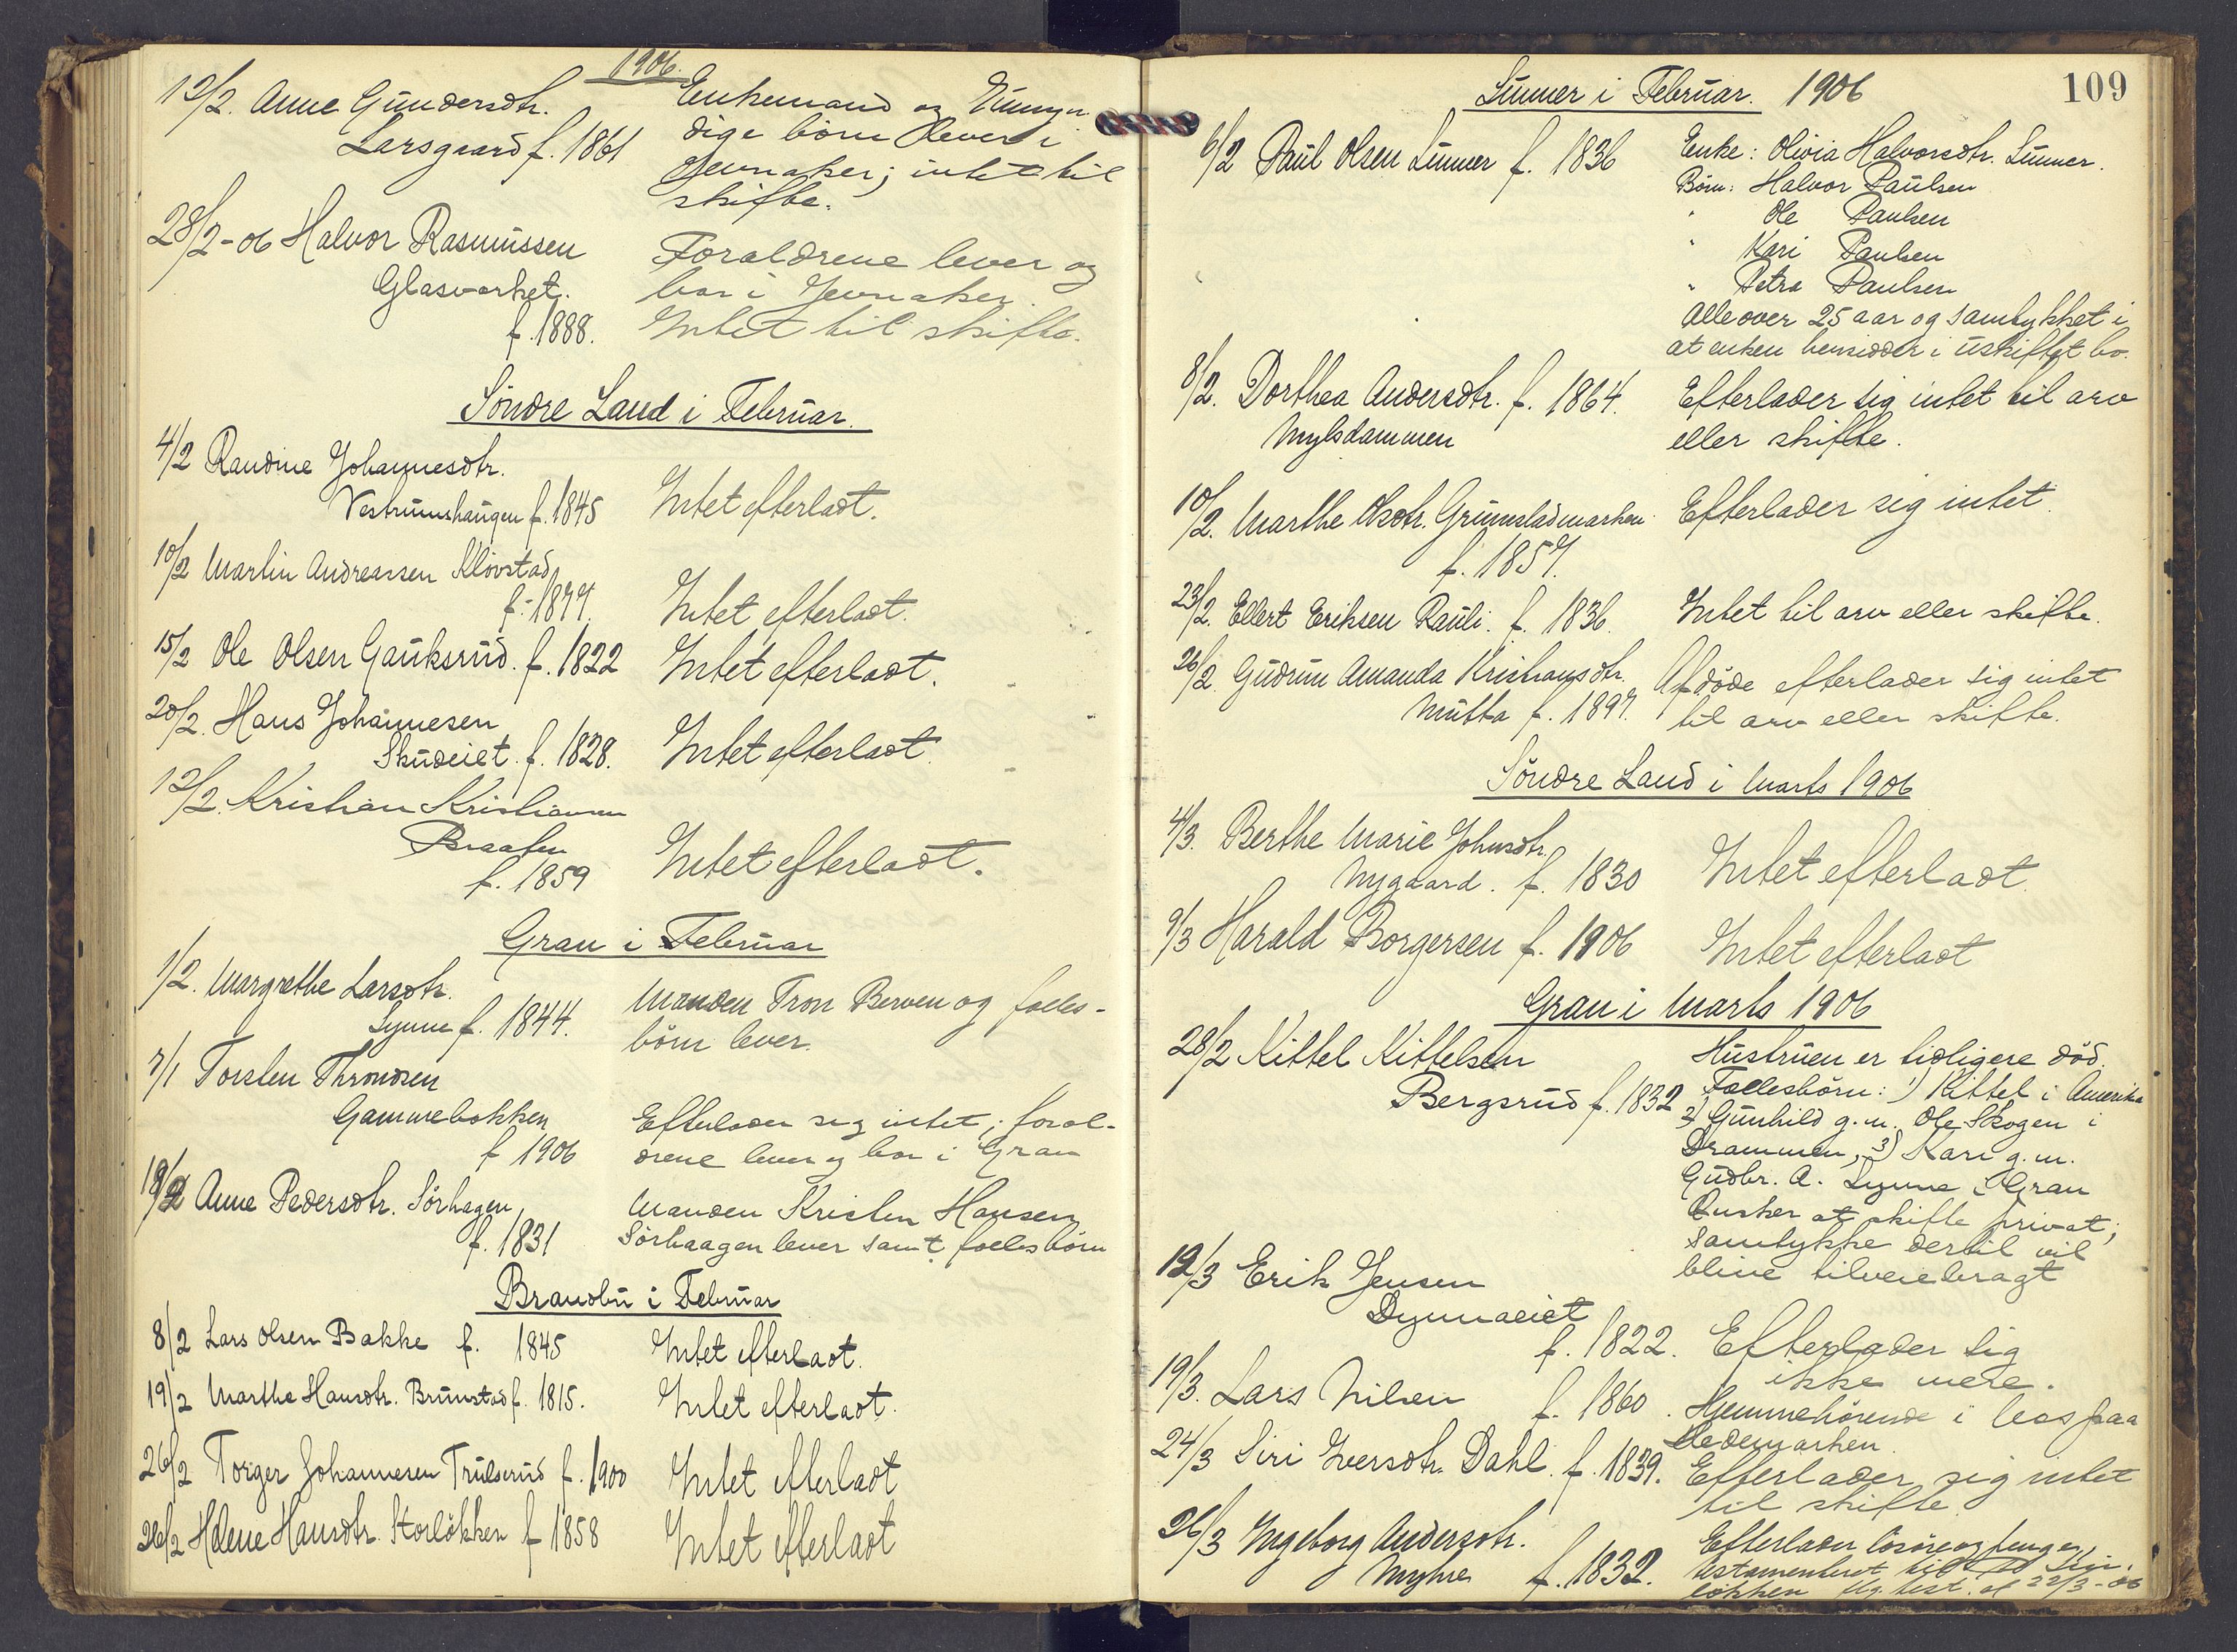 1906.
12/2. Anne Gundersdtr. Enkemand og Umyn-
Larsgaard f. 1861 dige børn lever i
Jevnaker; intet til
skifte.
28/2-06 Halvor Rasmussen Forældrene lever og
Glasværket. bor i Jevnaker.
f. 1888. Intet til skifte.
Söndre Land i Februar.
4/2 Randine Johannesdtr.
Vestrumshaugen f. 1845 Intet efterladt.
10/2 Martin Andreassen Klövstad
f. 1877. Intet efterladt.
15/2 Ole Olsen Gauksrud. f. 1822 Intet efterladt.
20/2. Hans Johannesen
Skudeiet. f. 1828. Intet efterladt.
12/2. Kristian Kristiansen
Braaten
f. 1859 Intet efterladt.
Gran i Februar
1/2. Margrethe Larsdtr. Manden Tron Berven og fælles-
Lynne f. 1844. börn lever.
7/1 Torsten Throndsen
Gammebakken Efterlader sig intet; foræl-
f 1906 drene lever og bor i Gran
18/2 Anne Pedersdtr. Sörhagen, Manden Kristen Hansen
f. 1831 Sörhaagen lever samt fælles börn
Brandbu i Februar
8/2 Lars Olsen Bakke f. 1845 Intet efterladt.
19/2 Marthe Hansdtr. Brunstad f. 1815. Intet efterladt.
26/2 Torger Johannesen Trulserud f. 1900 Intet efterladt
26/2 Helene Hansdtr. Storlökken f 1858 Intet efterladt
109
Lunner i Februar. 1906
6/2 Paul Olsen Lunner f. 1836 Enke: Olivia Halvorsdtr. Lunner.
Börn: Halvor Paulsen
" Ole Paulsen
" Kari Paulsen
" Petra Paulsen
Alle over 25 aar og samtykket i
at enken hensidder i uskiftet bo.
8/2. Dorthea Andersdtr. f. 1864. Efterlader sig intet til arv
Mylsdammen eller skifte.
10/2. Marthe Olsdtr. Grimsladmarken Efterlader sig intet.
f. 1857.
23/2. Ellert Eriksen Rauli. f. 1836. Intet til arv eller skifte.
26/2. Gudrun Amanda Kristiansdtr. Afdöde efterlader sig intet
Mutta f. 1897. til arv eller skifte.
Söndre Land i Marts 1906
4/3. Berthe Marie Johnsdtr.
Nygaard. f. 1830 Intet efterladt.
9/3 Harald Borgersen f. 1906 Intet efterladt
Gran i Marts 1906
28/2 Kittel Kittelsen Hustruen er tidligere död.
Bergsrud f. 1832 Fællesbörn: 1) Kittel i Amerika
2) Gunhild g.m. Ole Skogen i
Drammen, 3) Kari g.m.
Gudbr. A. Lynne i Gran
Önsker at skifte privat;
samtykke dertil vil
blive tilveiebragt
12/3 Erik Jensen
Dynnaeiet
f. 1822. Efterlader sig
ikke mere.
19/3. Lars Nilsen f. 1860. Hjemmehörende i Næs paa
Hedemarken.
24/3 Siri Iversdtr. Dahl. f. 1839. Efterlader sig intet
til skifte.
26/3 Ingeborg Andersdtr. Efterlader lösöre og penger,
Myhre f. 1832. testamenteret til
lökken flg. test. af 22/3-06